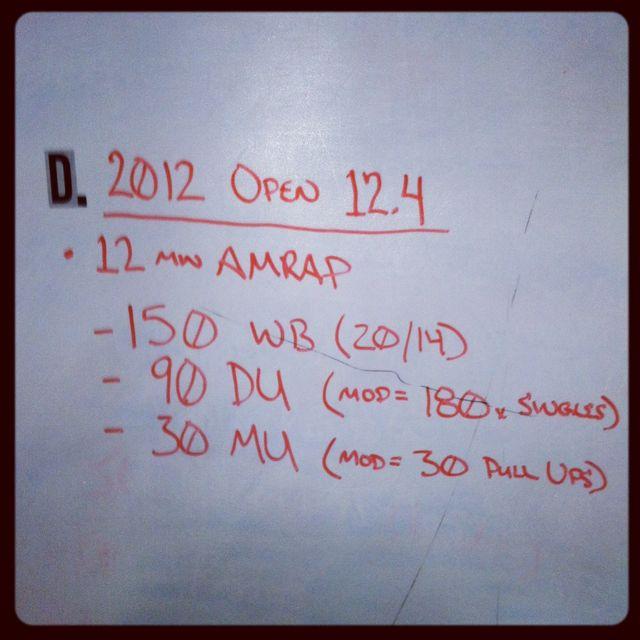 D. 2012 OPEN 12.4
• 12 MIN AMRAP
- 150 WB (20/14)
- 90 DU (MOD = 180 x SINGLES)
- 30 MU (MOD = 30 PULL UPS)